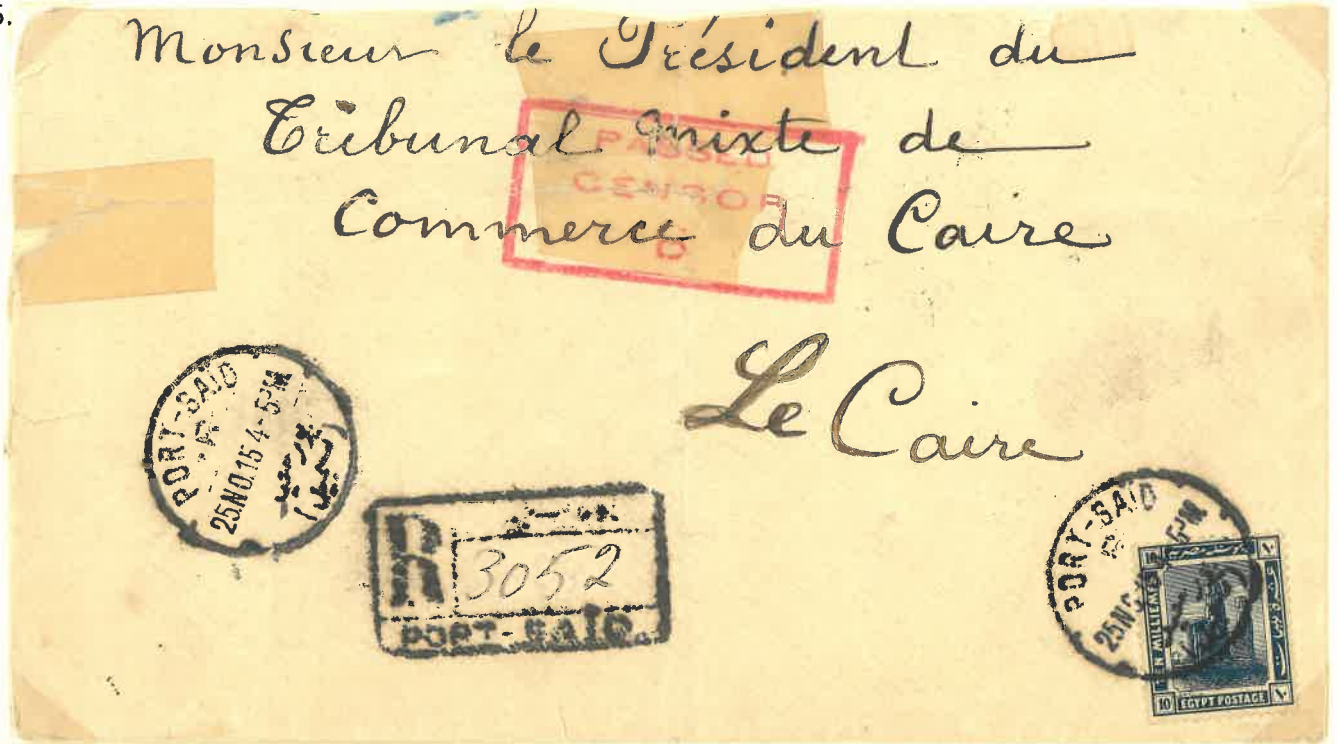 5.
Monsieur le Président du
Tribunal mixte de
Commerce du Caire
PASSED
CENSOR
Le Caire
PORT-SAÏD
25.NO.15 4-5PM
بورسعيد
R
3052
PORT-SAÏD
PORT-SAÏD
25NO 5PM
TEN MILLIEMES
10 EGYPT POSTAGE ١٠